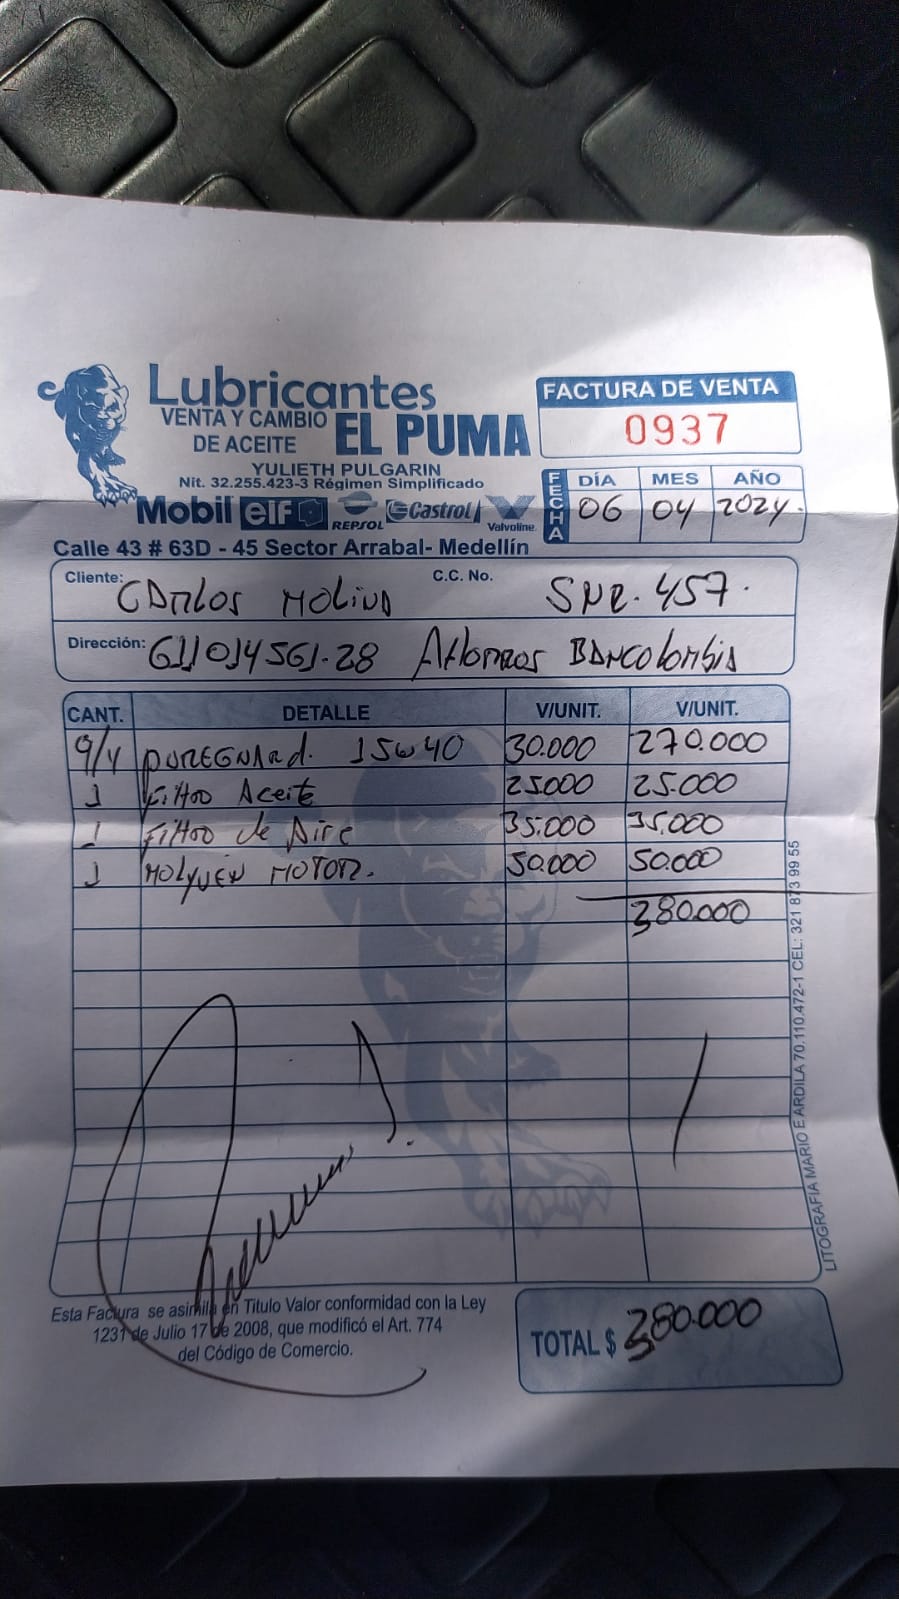 Lubricantes
VENTA Y CAMBIO
DE ACEITE
EL PUMA
YULIETH PULGARIN
Nit. 32.255.423-3 Régimen Simplificado
Mobil elf REPSOL Castrol Valvoline
Calle 43 # 63D - 45 Sector Arrabal- Medellín
FACTURA DE VENTA
0937
FECHA
DÍA MES AÑO
06 04 2024.
Cliente: Carlos Molina C.C. No. SNR. 457.
Dirección: 611014561-28 Ahorros Bancolombia
CANT. DETALLE V/UNIT. V/UNIT.
9/4 PUREGUARD. 15W40 30.000 270.000
1 Filtro Aceite 25.000 25.000
1 Filtro de Aire 35.000 35.000
1 MOTOR. 50.000 50.000
380.000
Esta Factura se asimila en Titulo Valor conformidad con la Ley
1231 de Julio 17 de 2008, que modificó el Art. 774
del Código de Comercio.
TOTAL $ 380.000
LITOGRAFIA MARIO E ARDILA 70.110.472-1 CEL: 321 873 99 55